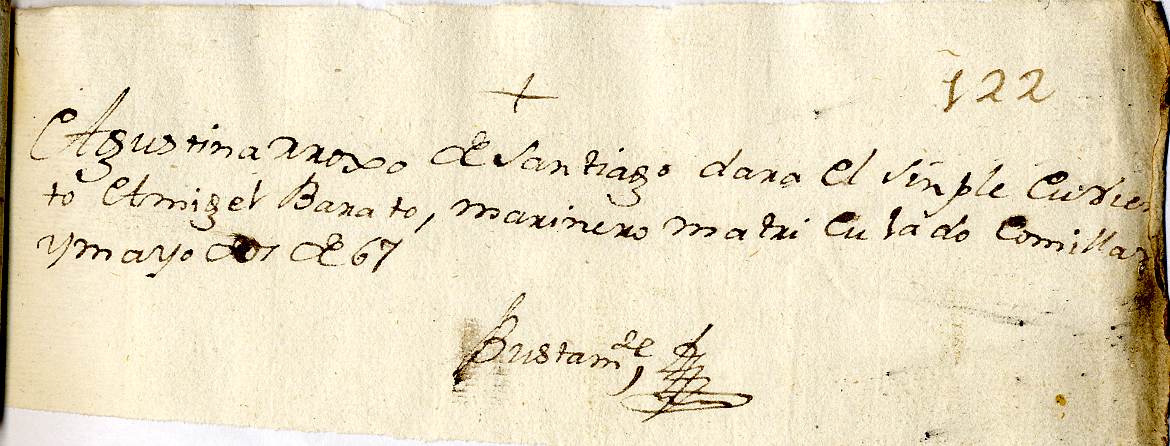 122
Agustina rroxo de Santiago dara el sinple Cubier
to Amigel Barato, marinero matri Cu lado Comillas
y mayo dos de 67
Bustam.te,